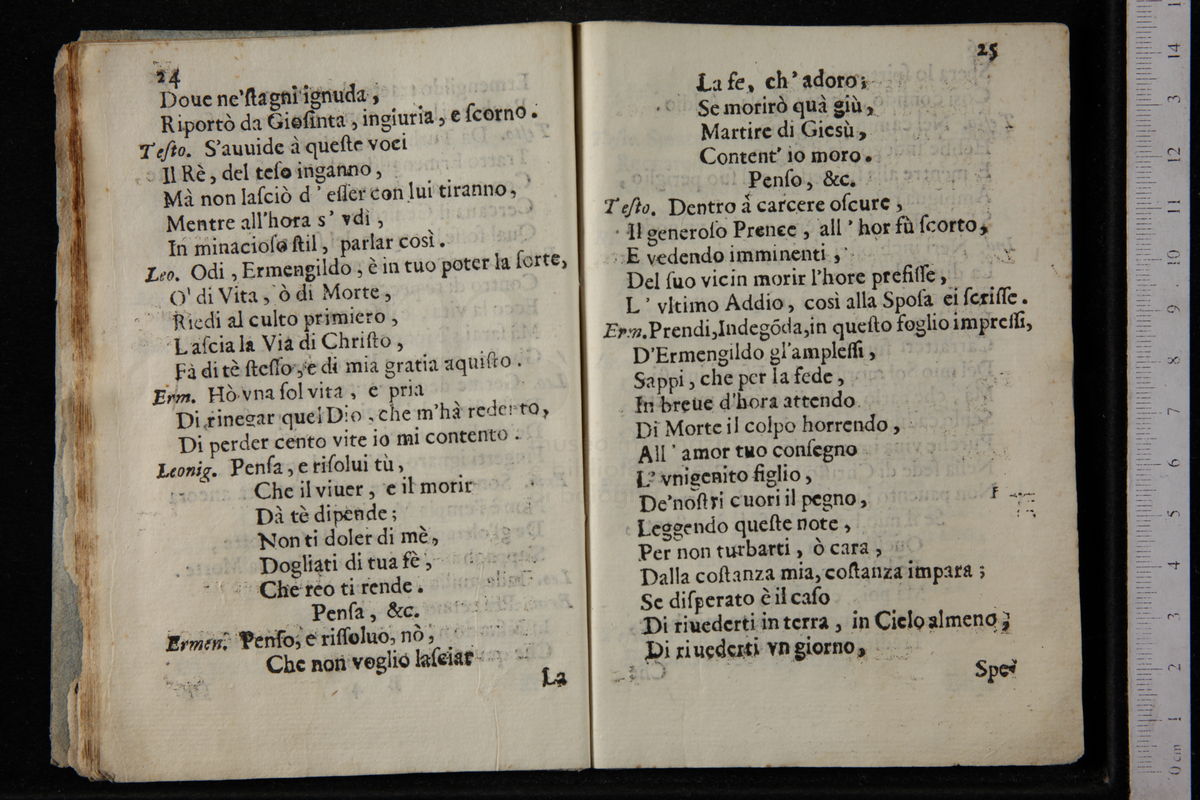 24
Doue ne'ſtagni ignuda,
Riportò da Gioſinta, ingiuria, e ſcorno.
Teſto. S'auuide à queſte voci
Il Rè, del teſo inganno,
Mà non laſciò d'eſſer con lui tiranno,
Mentre all'hora s'vdì,
In minacioſo ſtil, parlar così.
Leo. Odi, Ermengildo, è in tuo poter la ſorte,
O' di Vita, ò di Morte,
Riedi al culto primiero,
Laſcia la Via di Chriſto,
Fà di tè ſteſſo, e di mia gratia aquiſto.
Erm. Hò vna ſol vita, e pria
Di rinegar quel Dio, che m'hà redento,
Di perder cento vite io mi contento.
Leonig. Penſa, e riſolui tù,
Che il viuer, e il morir
Dà tè dipende;
Non ti doler di mè,
Dogliati di tua fè,
Che reo ti rende.
Penſa, &c.
Ermen. Penſo, e riſſoluo, nò,
Che non voglio laſciar
La
25
La fe, ch'adoro;
Se morirò quà giù,
Martire di Giesù,
Content' io moro.
Penſo, &c.
Teſto. Dentro à carcere oſcure,
Il generoſo Prence, all'hor fù ſcorto,
E vedendo imminenti,
Del ſuo vicin morir l'hore prefiſſe,
L'vltimo Addio, così alla Spoſa ei ſcriſſe.
Erm. Prendi, Indegōda, in queſto foglio impreſſi,
D'Ermengildo gl'ampleſſi,
Sappi, che per la fede,
In breue d'hora attendo
Di Morte il colpo horrendo,
All'amor tuo conſegno
L'vnigenito figlio,
De'noſtri cuori il pegno,
Leggendo queſte note,
Per non turbarti, ò cara,
Dalla coſtanza mia, coſtanza impara;
Se diſperato è il caſo
Di riuederti in terra, in Cielo almeno,
Di riuederti vn giorno,
Spe-